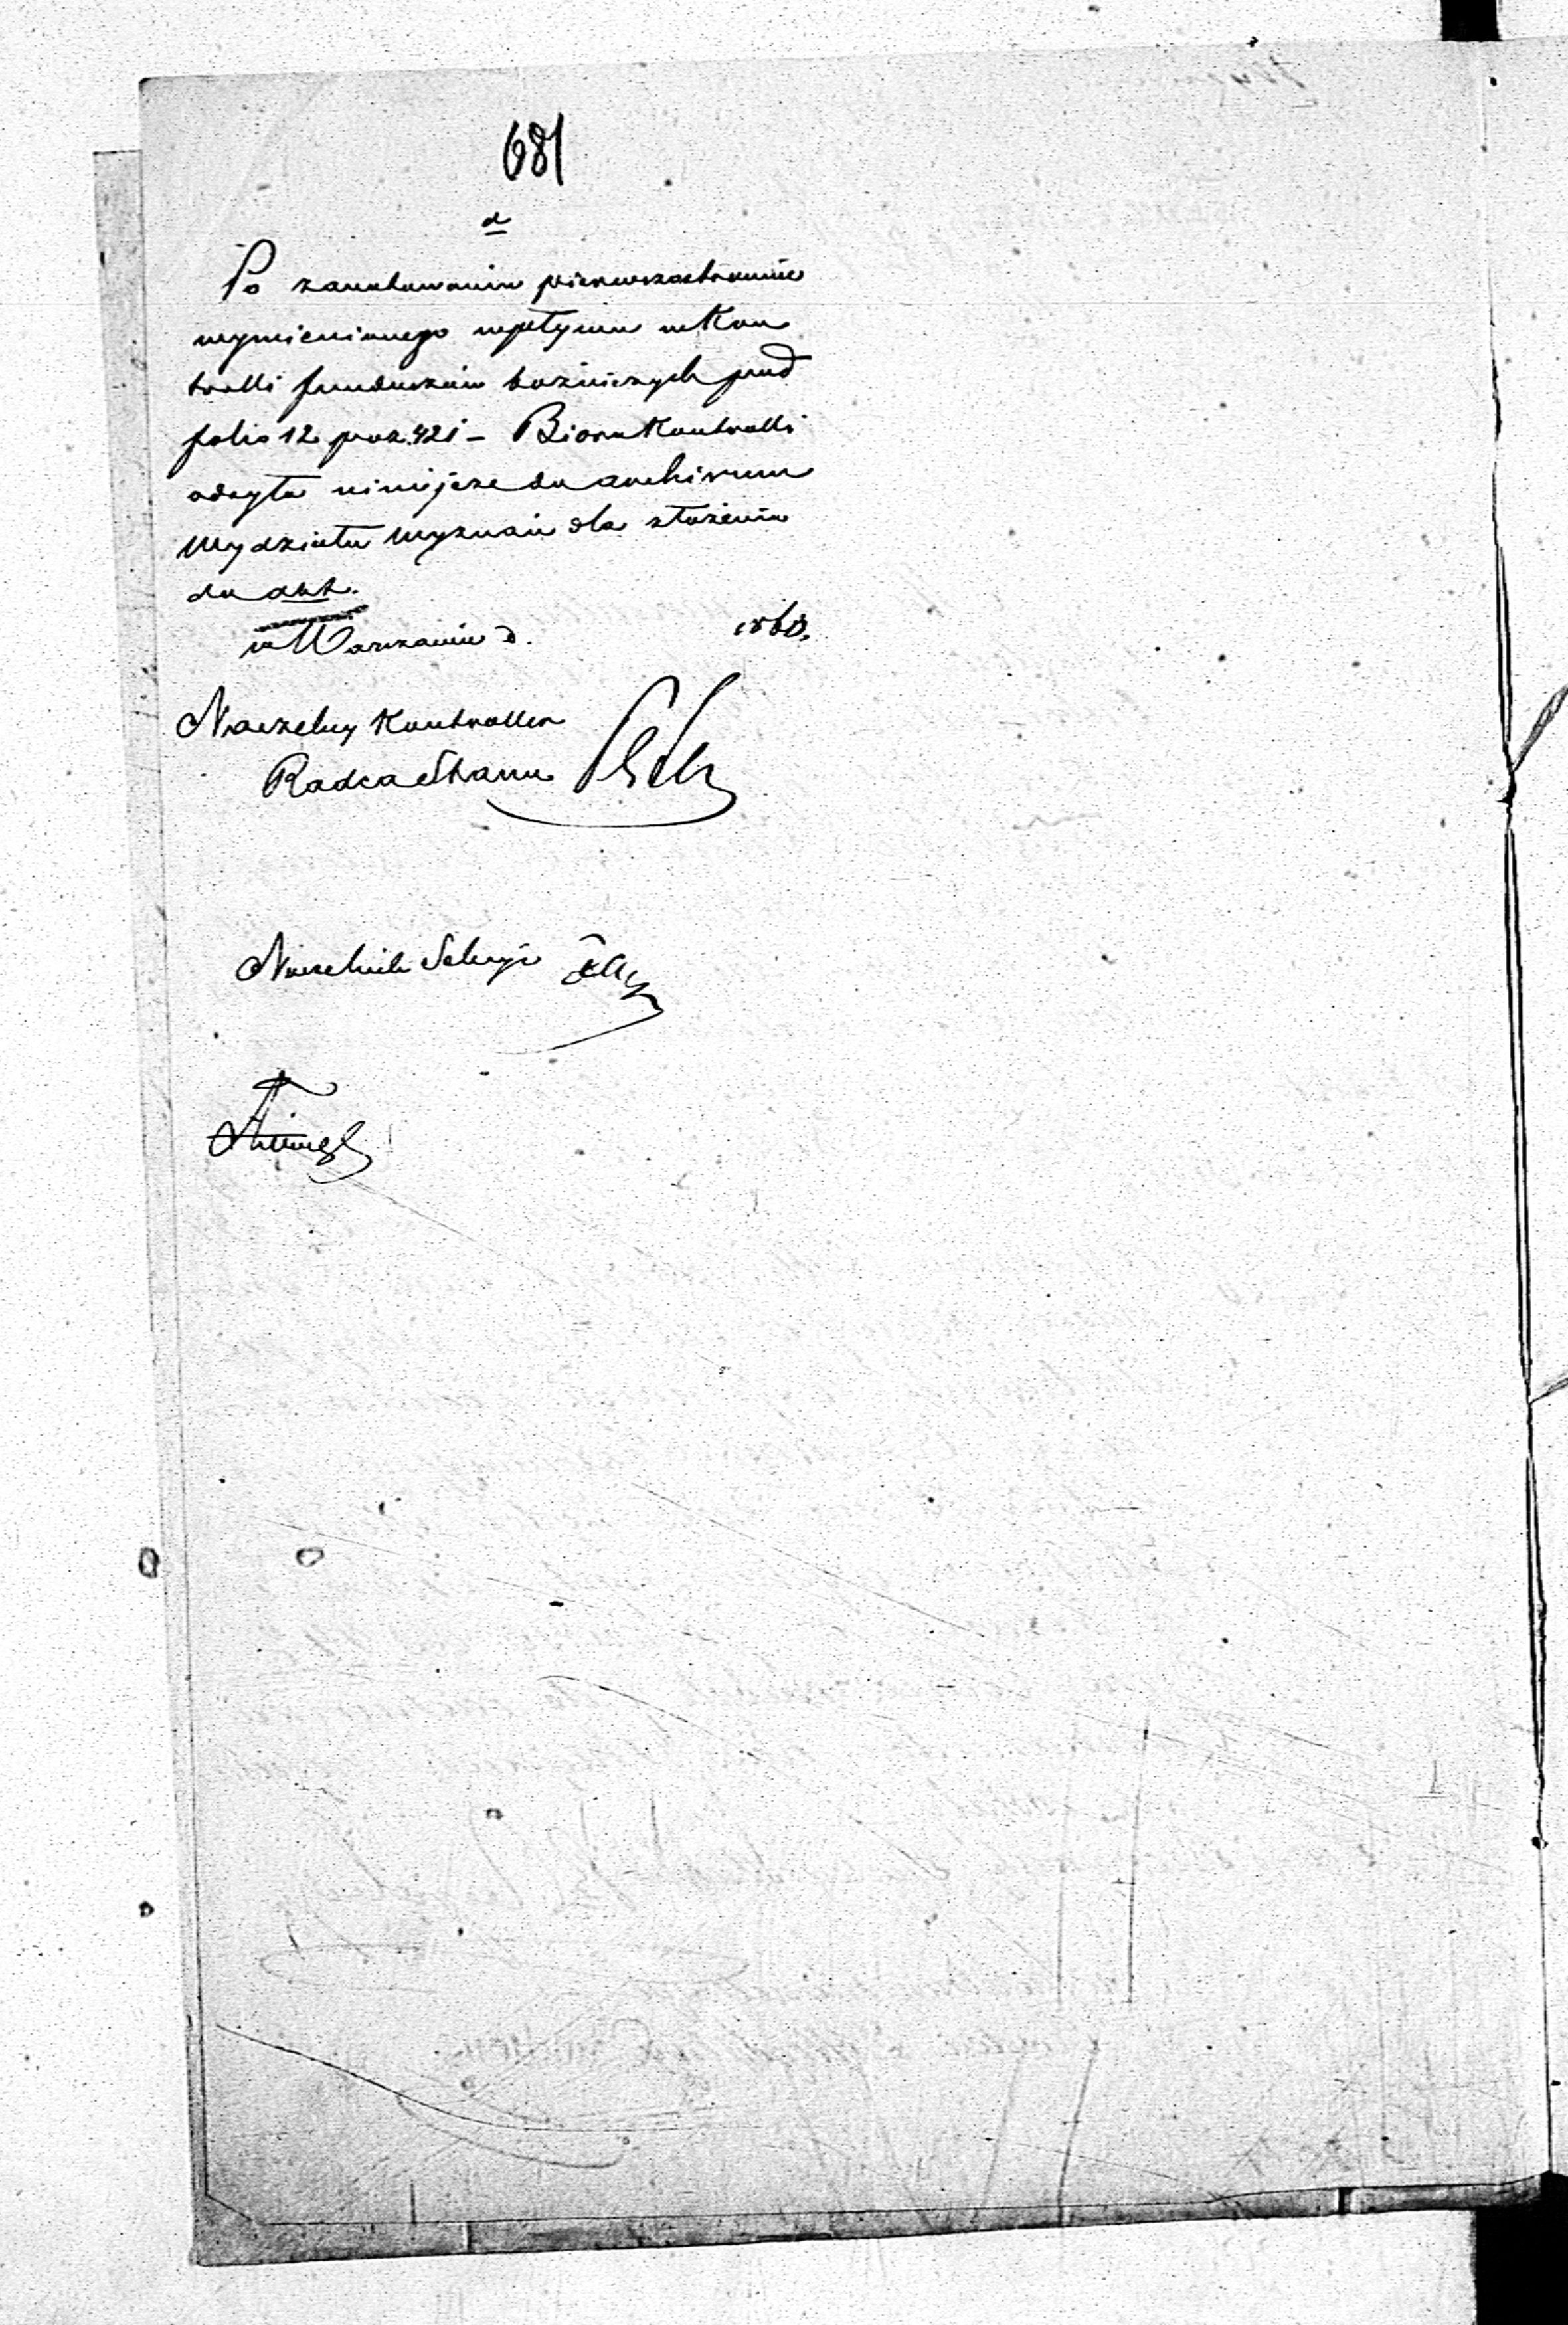 681
d
Po zanotowaniu pierwszostronnie
wymienionego wpływu w Kon
trolli funduszów bożniczych pod
folio 12 poz. 421 – Bióro Kontrolli
odsyła niniejsze do archiwum
Wydziału Wyznań dla złożenia
do akt.
w Warszawie d. 1860.
Naczelny Kontroller
Radca Stanu
Naczelnik Sekcyi